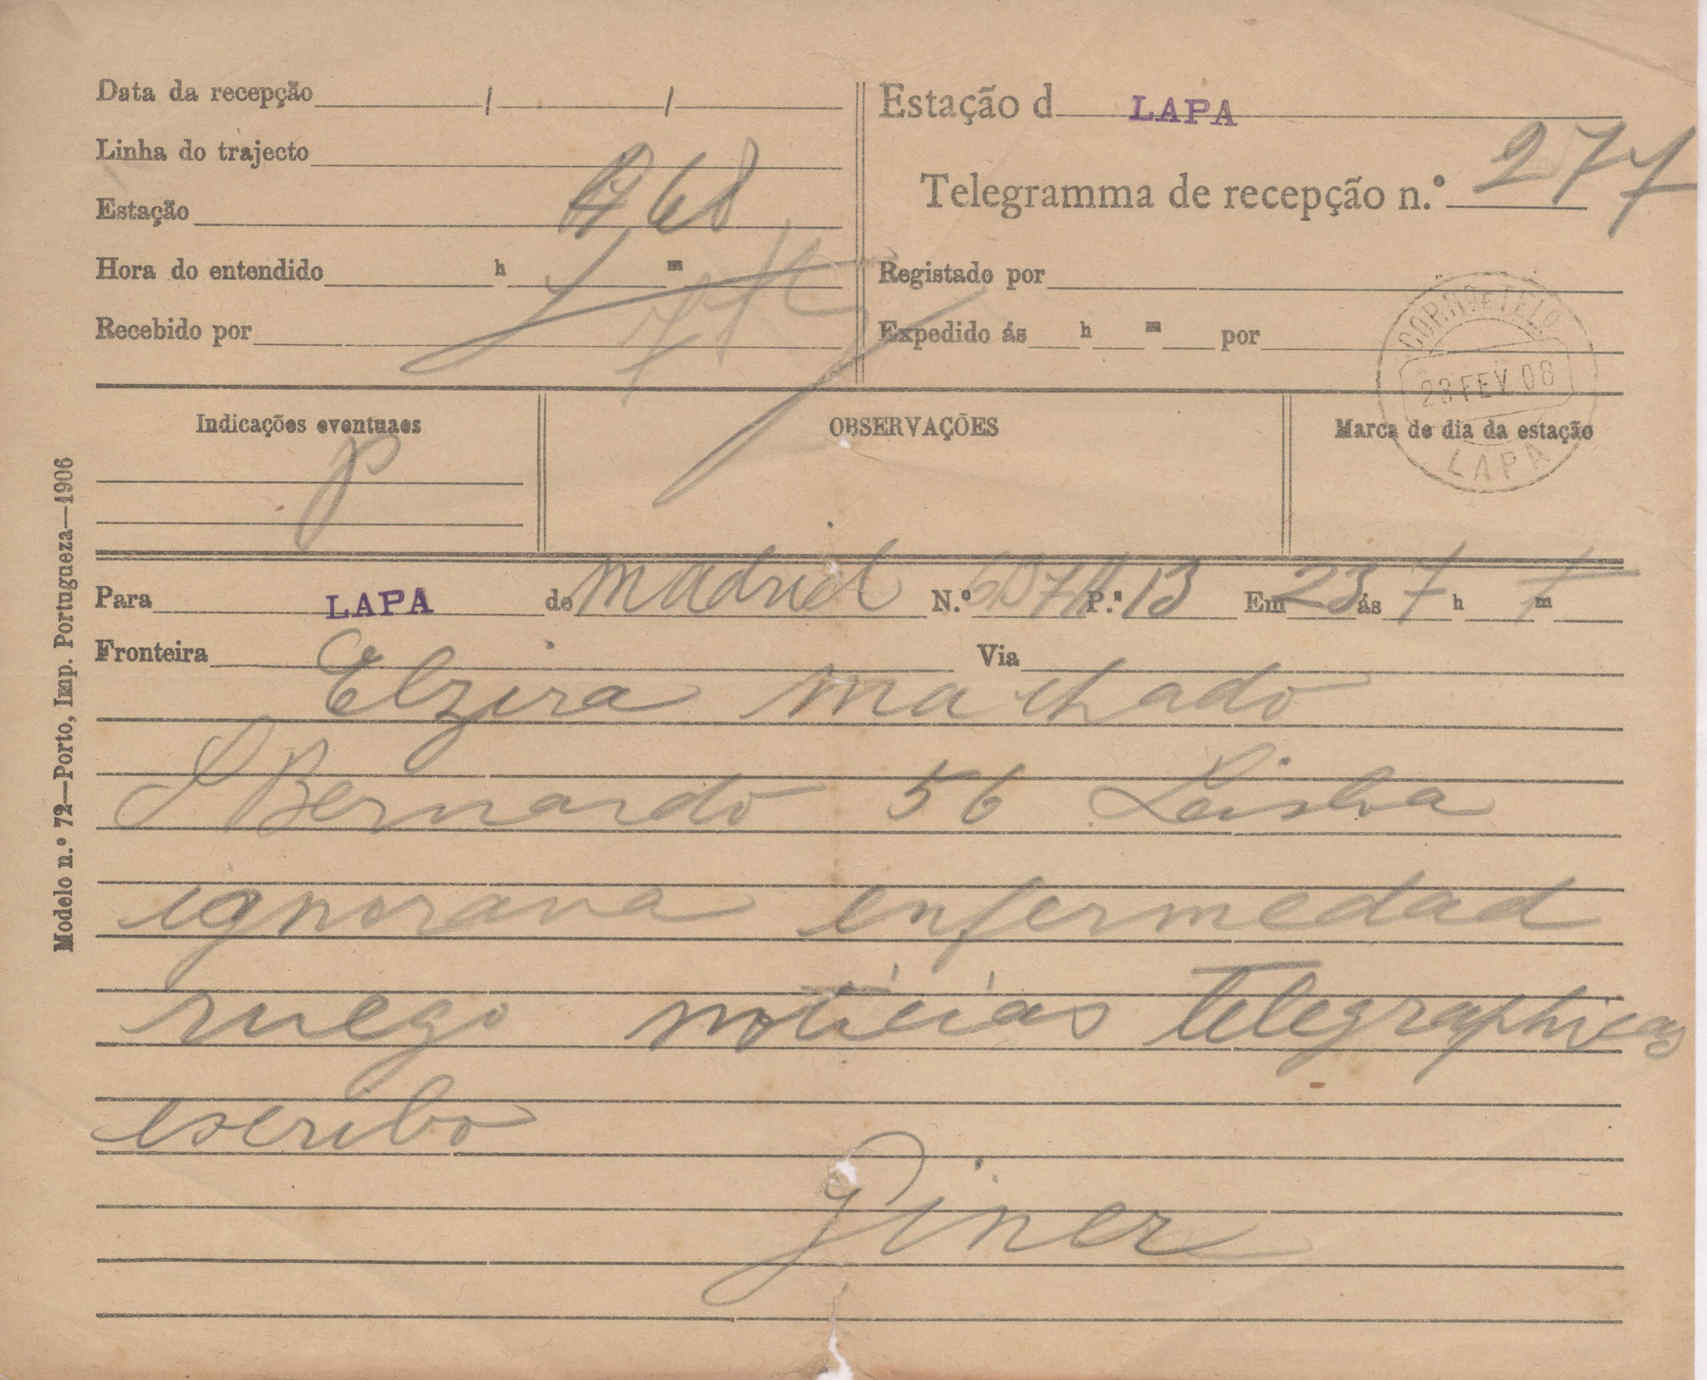 Data da recepção / /
Linha do trajecto
Estação 68
Hora do entendido h m
Recebido por
Estação d LAPA
Telegramma de recepção n.º 277
Registado por
Expedido ás h m por
CORR.os E TELO
23 FEV. 08
LAPA
Indicações eventuaes
P
OBSERVAÇÕES
Marca de dia da estação
Modelo n.º 72—Porto, Imp. Portugueza—1906
Para LAPA de Madrid N.º P.as 13 Em 23 ás 7 h m
Fronteira Via
Elzira Machado
S Bernardo 56 Lisboa
ignorava enfermedad
ruego noticias telegraphicas
escribo
Giner